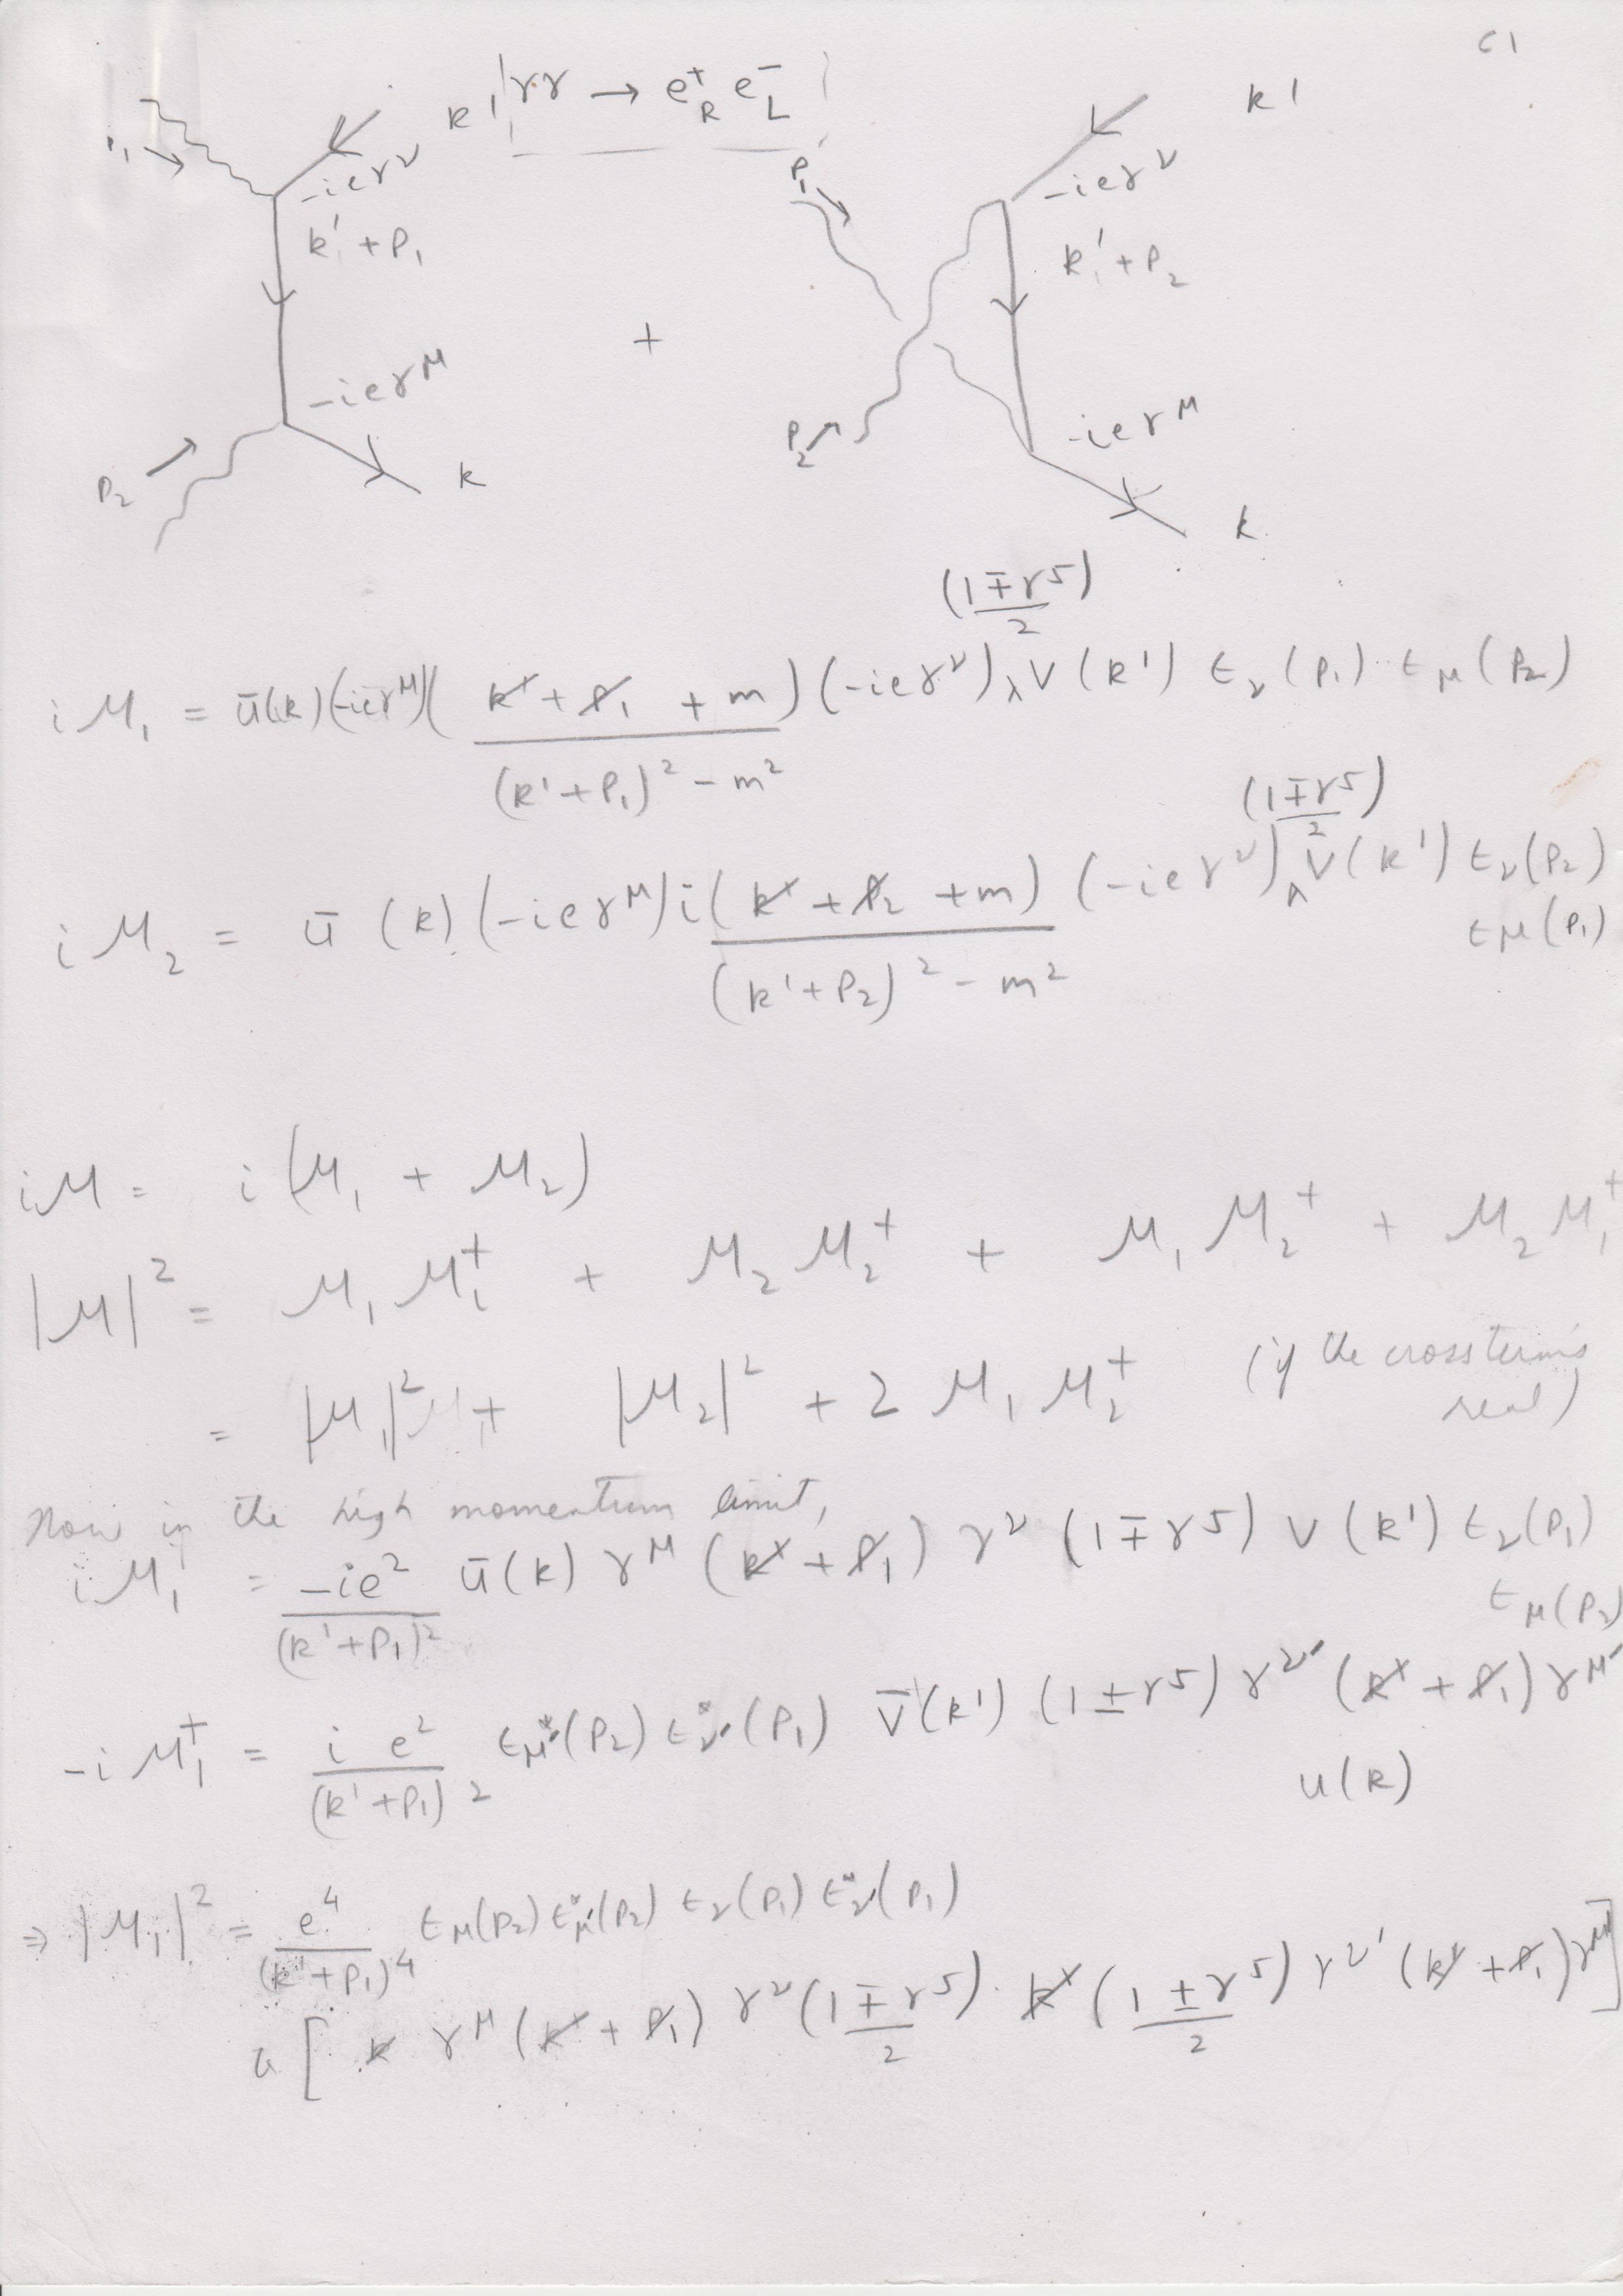 C1
γγ → e⁺_R e⁻_L
k' k'
p₁ -ieγ^ν p₁ -ieγ^ν
k' + p₁ k' + p₂
+
-ieγ^μ -ieγ^μ
p₂ k p₂ k
(1∓γ⁵)/2
iM₁ = ū(k)(-ieγ^μ)( k̸' + p̸₁ + m )/((k'+p₁)² - m²) (-ieγ^ν)‸ v(k') ε_ν(p₁) ε_μ(p₂)
(1∓γ⁵)/2
iM₂ = ū(k)(-ieγ^μ) i( k̸' + p̸₂ + m )/((k'+p₂)² - m²) (-ieγ^ν)‸ v(k') ε_ν(p₂)
ε_μ(p₁)
iM = i(M₁ + M₂)
|M|² = M₁M₁† + M₂M₂† + M₁M₂† + M₂M₁†
= |M₁|² + |M₂|² + 2 M₁M₂† (if the cross term is
real)
Now in the high momentum limit,
iM₁ = -ie²/(k'+p₁)² ū(k) γ^μ (k̸' + p̸₁) γ^ν (1∓γ⁵) v(k') ε_ν(p₁)
ε_μ(p₂)
-iM₁† = i e²/(k'+p₁)² ε*_μ'(p₂) ε*_ν'(p₁) v̄(k') (1±γ⁵) γ^ν' (k̸' + p̸₁) γ^μ'
u(k)
⇒ |M₁|² = e⁴/(k'+p₁)⁴ ε_μ(p₂) ε*_μ'(p₂) ε_ν(p₁) ε*_ν'(p₁)
[ k̸ γ^μ (k̸' + p̸₁) γ^ν (1∓γ⁵)/2 · k̸' (1±γ⁵)/2 γ^ν' (k̸' + p̸₁) γ^μ' ]